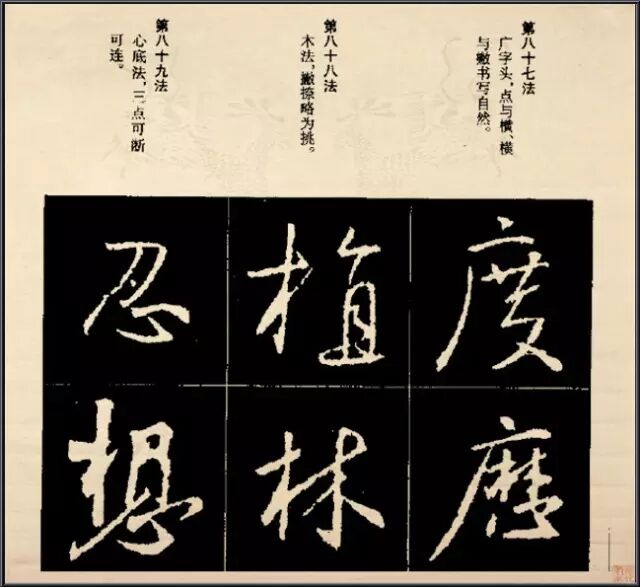 第八十七法
广字头,点与横、横
与撇书写自然。
第八十八法
木法,撇掠略为挑。
第八十九法
心底法,三点可断
可连。
度植忍
林想